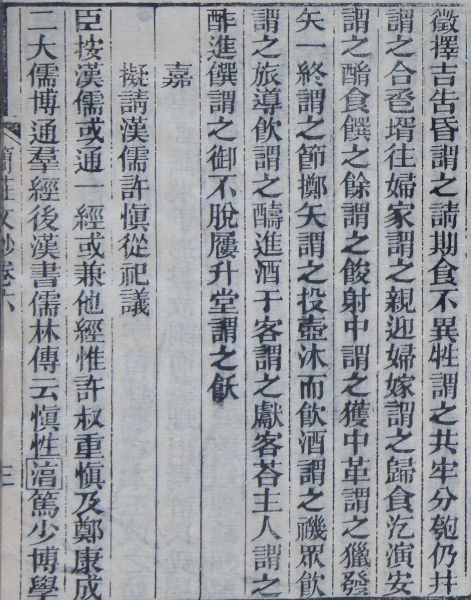 徵擇吉告昏謂之請期食不異牲謂之共牢分匏仍幷
謂之合卺壻往婦家謂之親迎婦嫁謂之歸食汔演安
謂之酳食饌之餘謂之餕射中謂之獲中革謂之獵發
矢一終謂之節擲矢謂之投壺沐而飲酒謂之禨眾飲
謂之旅導飲謂之醻進酒于客謂之獻客荅主人謂之
酢進饌謂之御不脫屨升堂謂之飫
嘉
擬請漢儒許愼從祀議
臣按漢儒或通一經或兼他經惟許叔重愼及鄭康成
二大儒博通羣經後漢書儒林傳云愼性淳篤少博學
文鈔卷六
三